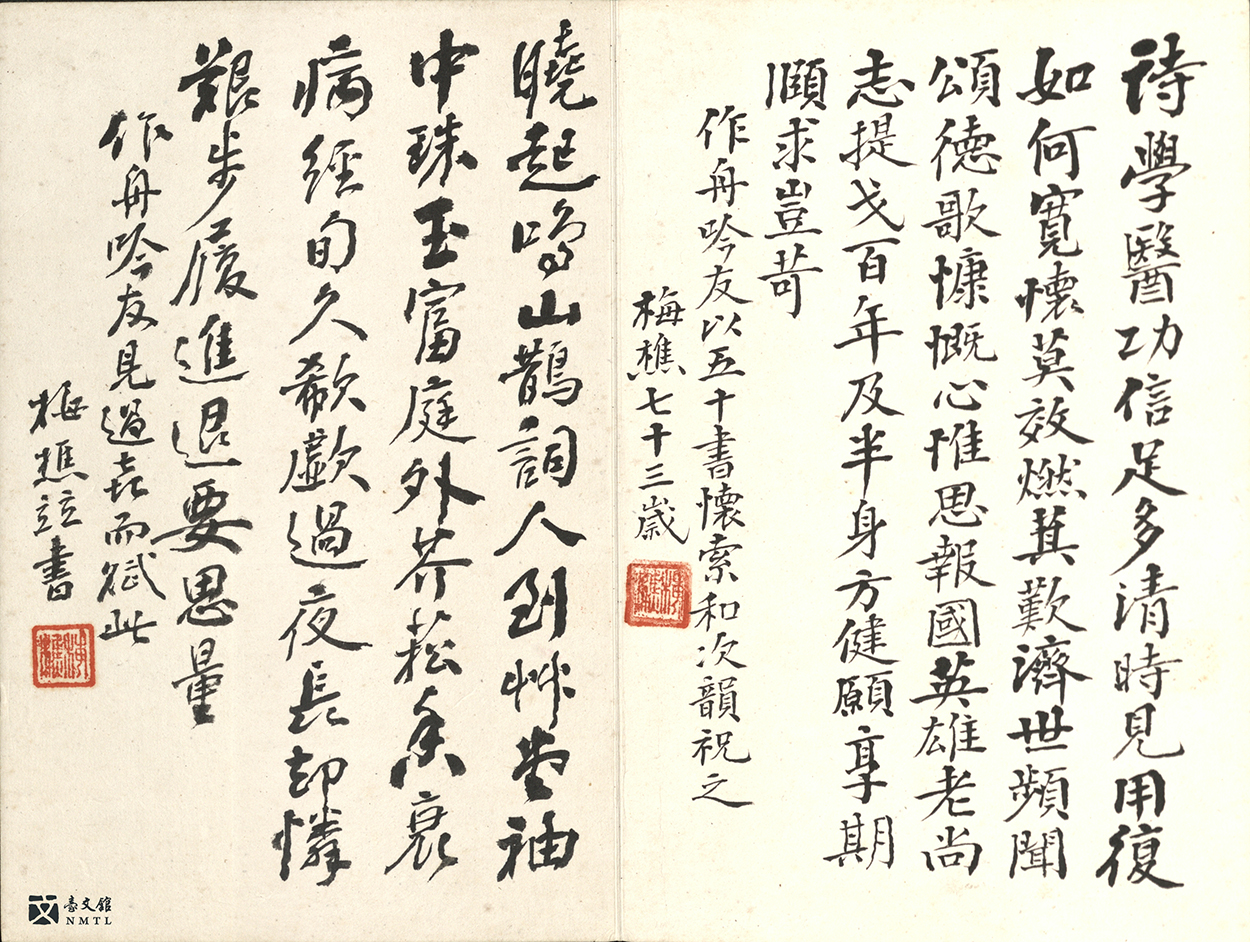 詩學醫功信足多清時見用復
如何寬懷莫效燃萁歎濟世頻聞
頌德歌慷慨心惟思報國英雄老尚
志提戈百年及半身方健願享期
頤求豈苛
作舟吟友以五十書懷索和次韻祝之
梅樵七十三歲
梅樵
曉起鳴山鵲詞人到艸堂袖
中珠玉富庭外芥菘香衰
病經旬久欷歔過夜長却憐
艱步履進退要思量
作舟吟友見過喜而賦此
梅樵並書
梅樵
臺文館
NMTL